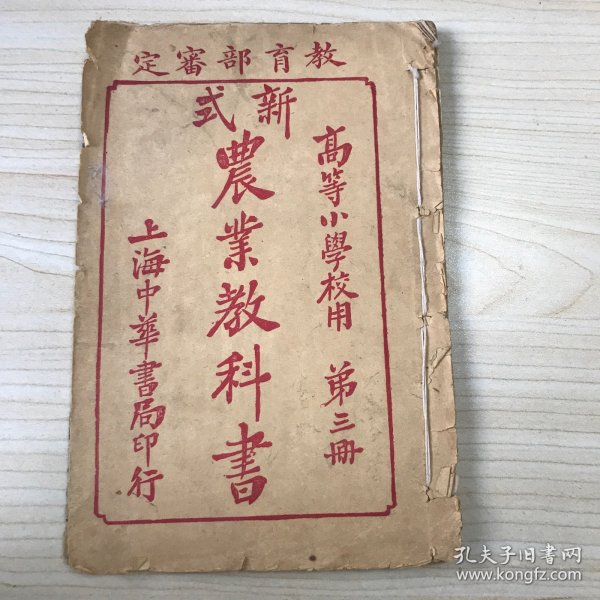 教育部審定
高等小學校用 第三冊
新式
農業教科書
上海中華書局印行
孔夫子旧书网
www.kongfz.com